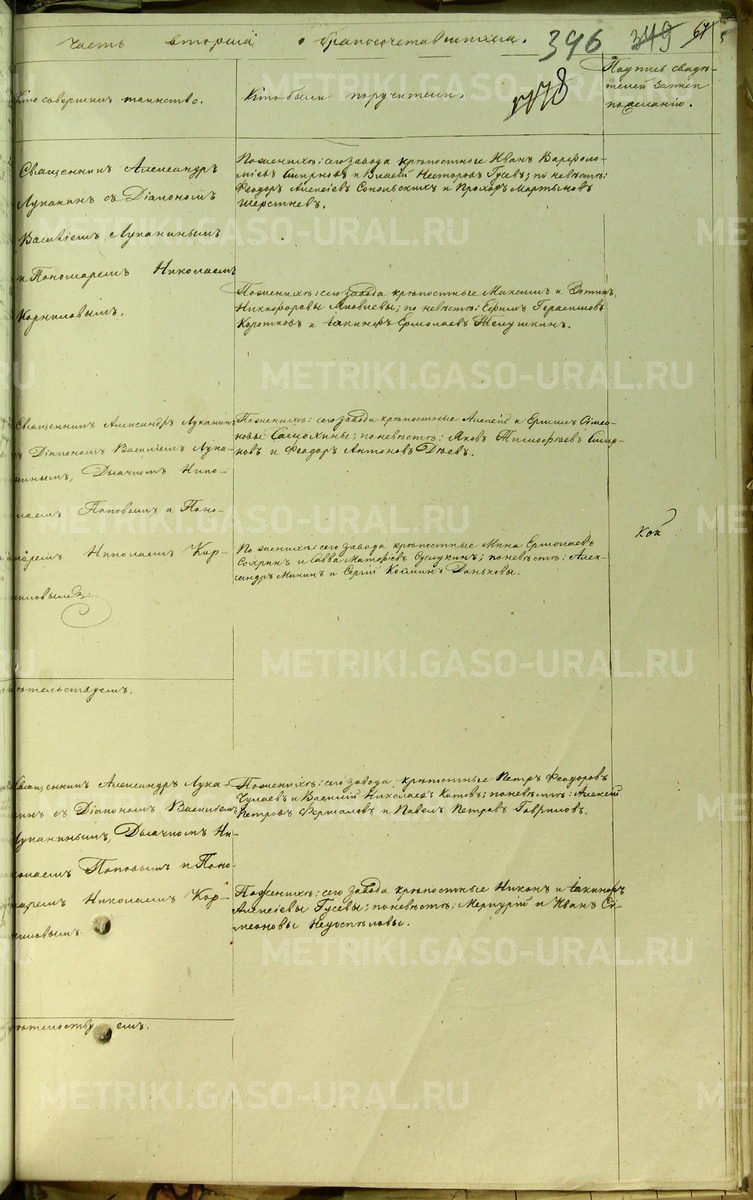 часть вторая о бракосочетавшихся. 396 349 67
Кто совершил таинство.
Кто были поручители.
Подпись свидѣ-
телей записи
по желанію.
Священникъ Александръ
Луканинъ съ Діакономъ
Василіемъ Луканинымъ
и Пономаремъ Николаемъ
Корниловымъ.
По женихѣ: сего завода крѣпостные Иванъ Варѳоло-
мѣевъ Смирновъ и Власій Несторовъ Гусевъ; по невѣстѣ:
Феодоръ Алексѣевъ Сокольскихъ и Прохоръ Мартыновъ
Шерстневъ.
По женихѣ: сего завода крѣпостные Максимъ и Фотій
Никифоровы Яковлевы; по невѣстѣ: Ефимъ Герасимовъ
Коротковъ и Іакинфъ Ермолаевъ
Священникъ Александръ Луканинъ
съ Діакономъ Василіемъ Лука-
нинымъ, Дьячкомъ Нико-
лаемъ Поповымъ и Поно-
маремъ Николаемъ Кор-
ниловымъ.
По женихѣ: сего завода крѣпостные Алексѣй и Ермилъ Симео-
новы; по невѣстѣ: Яковъ Тимофѣевъ Смир-
новъ и Феодоръ Антоновъ
По женихѣ: сего завода крѣпостные Мина Ермолаевъ
и Савва Матфѣевъ; по невѣстѣ: Алек-
сандръ Мининъ и Сергій Космины Даньковы.
свидѣтельствуемъ.
Священникъ Александръ Лука-
нинъ съ Діакономъ Василіемъ
Луканинымъ, Дьячкомъ Ни-
колаемъ Поповымъ и Поно-
маремъ Николаемъ Кор-
ниловымъ.
По женихѣ: сего завода крѣпостные Петръ Феодоровъ
Чулаевъ и Василій Николаевъ Котовъ; по невѣстѣ: Алексѣй
Петровъ и Павелъ Петровъ Гавриловъ.
По женихѣ: сего завода крѣпостные Никонъ и Іакинфъ
Алексѣевы Гусевы; по невѣстѣ: Меркурій и Иванъ Си-
меоновы Недоспѣловы.
свидѣтельствуемъ.
METRIKI.GASO-URAL.RU